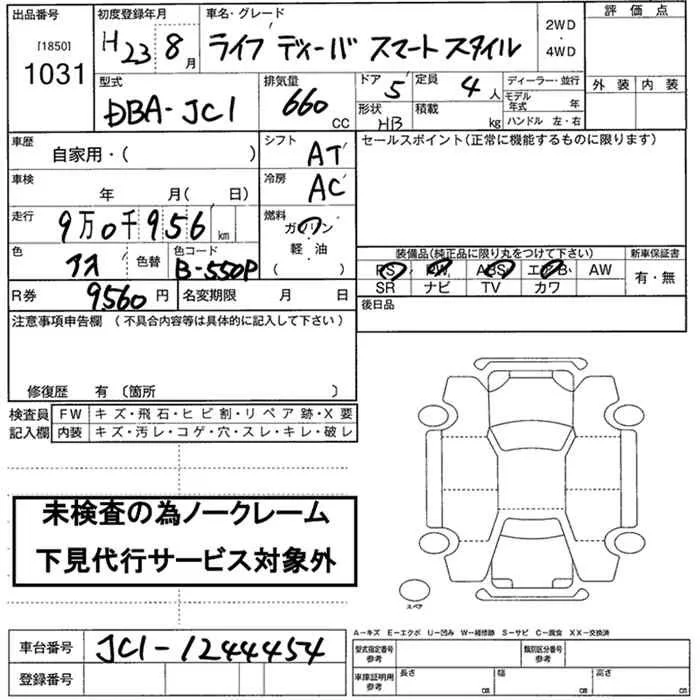 出品番号 初度登録年月 車名・グレード 評価点
[1850]
1031
H 23 8月 ライフ ディーバ スマート スタイル
2WD
・
4WD
外装 内装
型式 排気量 ドア 定員 ディーラー・並行
DBA-JC1 660 CC 5 4人
モデル年式 年
形状 積載 ハンドル 左・右
HB kg
車歴 シフト セールスポイント(正常に機能するものに限ります)
自家用・( ) AT
車検 冷房
年 月( 日) AC
走行 燃料
9万0千956km ガソリン・
軽・油
( )
色 色替 色コード
B-550P
装備品(純正品に限り丸をつけて下さい) 新車保証書
PS PW ABS エアB AW 有・無
SR ナビ TV カワ
R券 9560円 名変期限 月 日
後日品
注意事項申告欄 (不具合内容等は具体的に記入して下さい)
修復歴 有 〔箇所 〕
検査員 FW キズ・飛石・ヒビ割・リペア跡・X要
記入欄 内装 キズ・汚レ・コゲ・穴・スレ・キレ・破レ
未検査の為ノークレーム
下見代行サービス対象外
スペア
A-キズ E-エクボ U-凹み W-補修跡 S-サビ C-腐食 XX-交換済
車台番号 JC1-1244454
型式指定番号 参考 類別区分番号 参考
登録番号
車庫証明用 参考 長さ cm 幅 cm 高さ cm